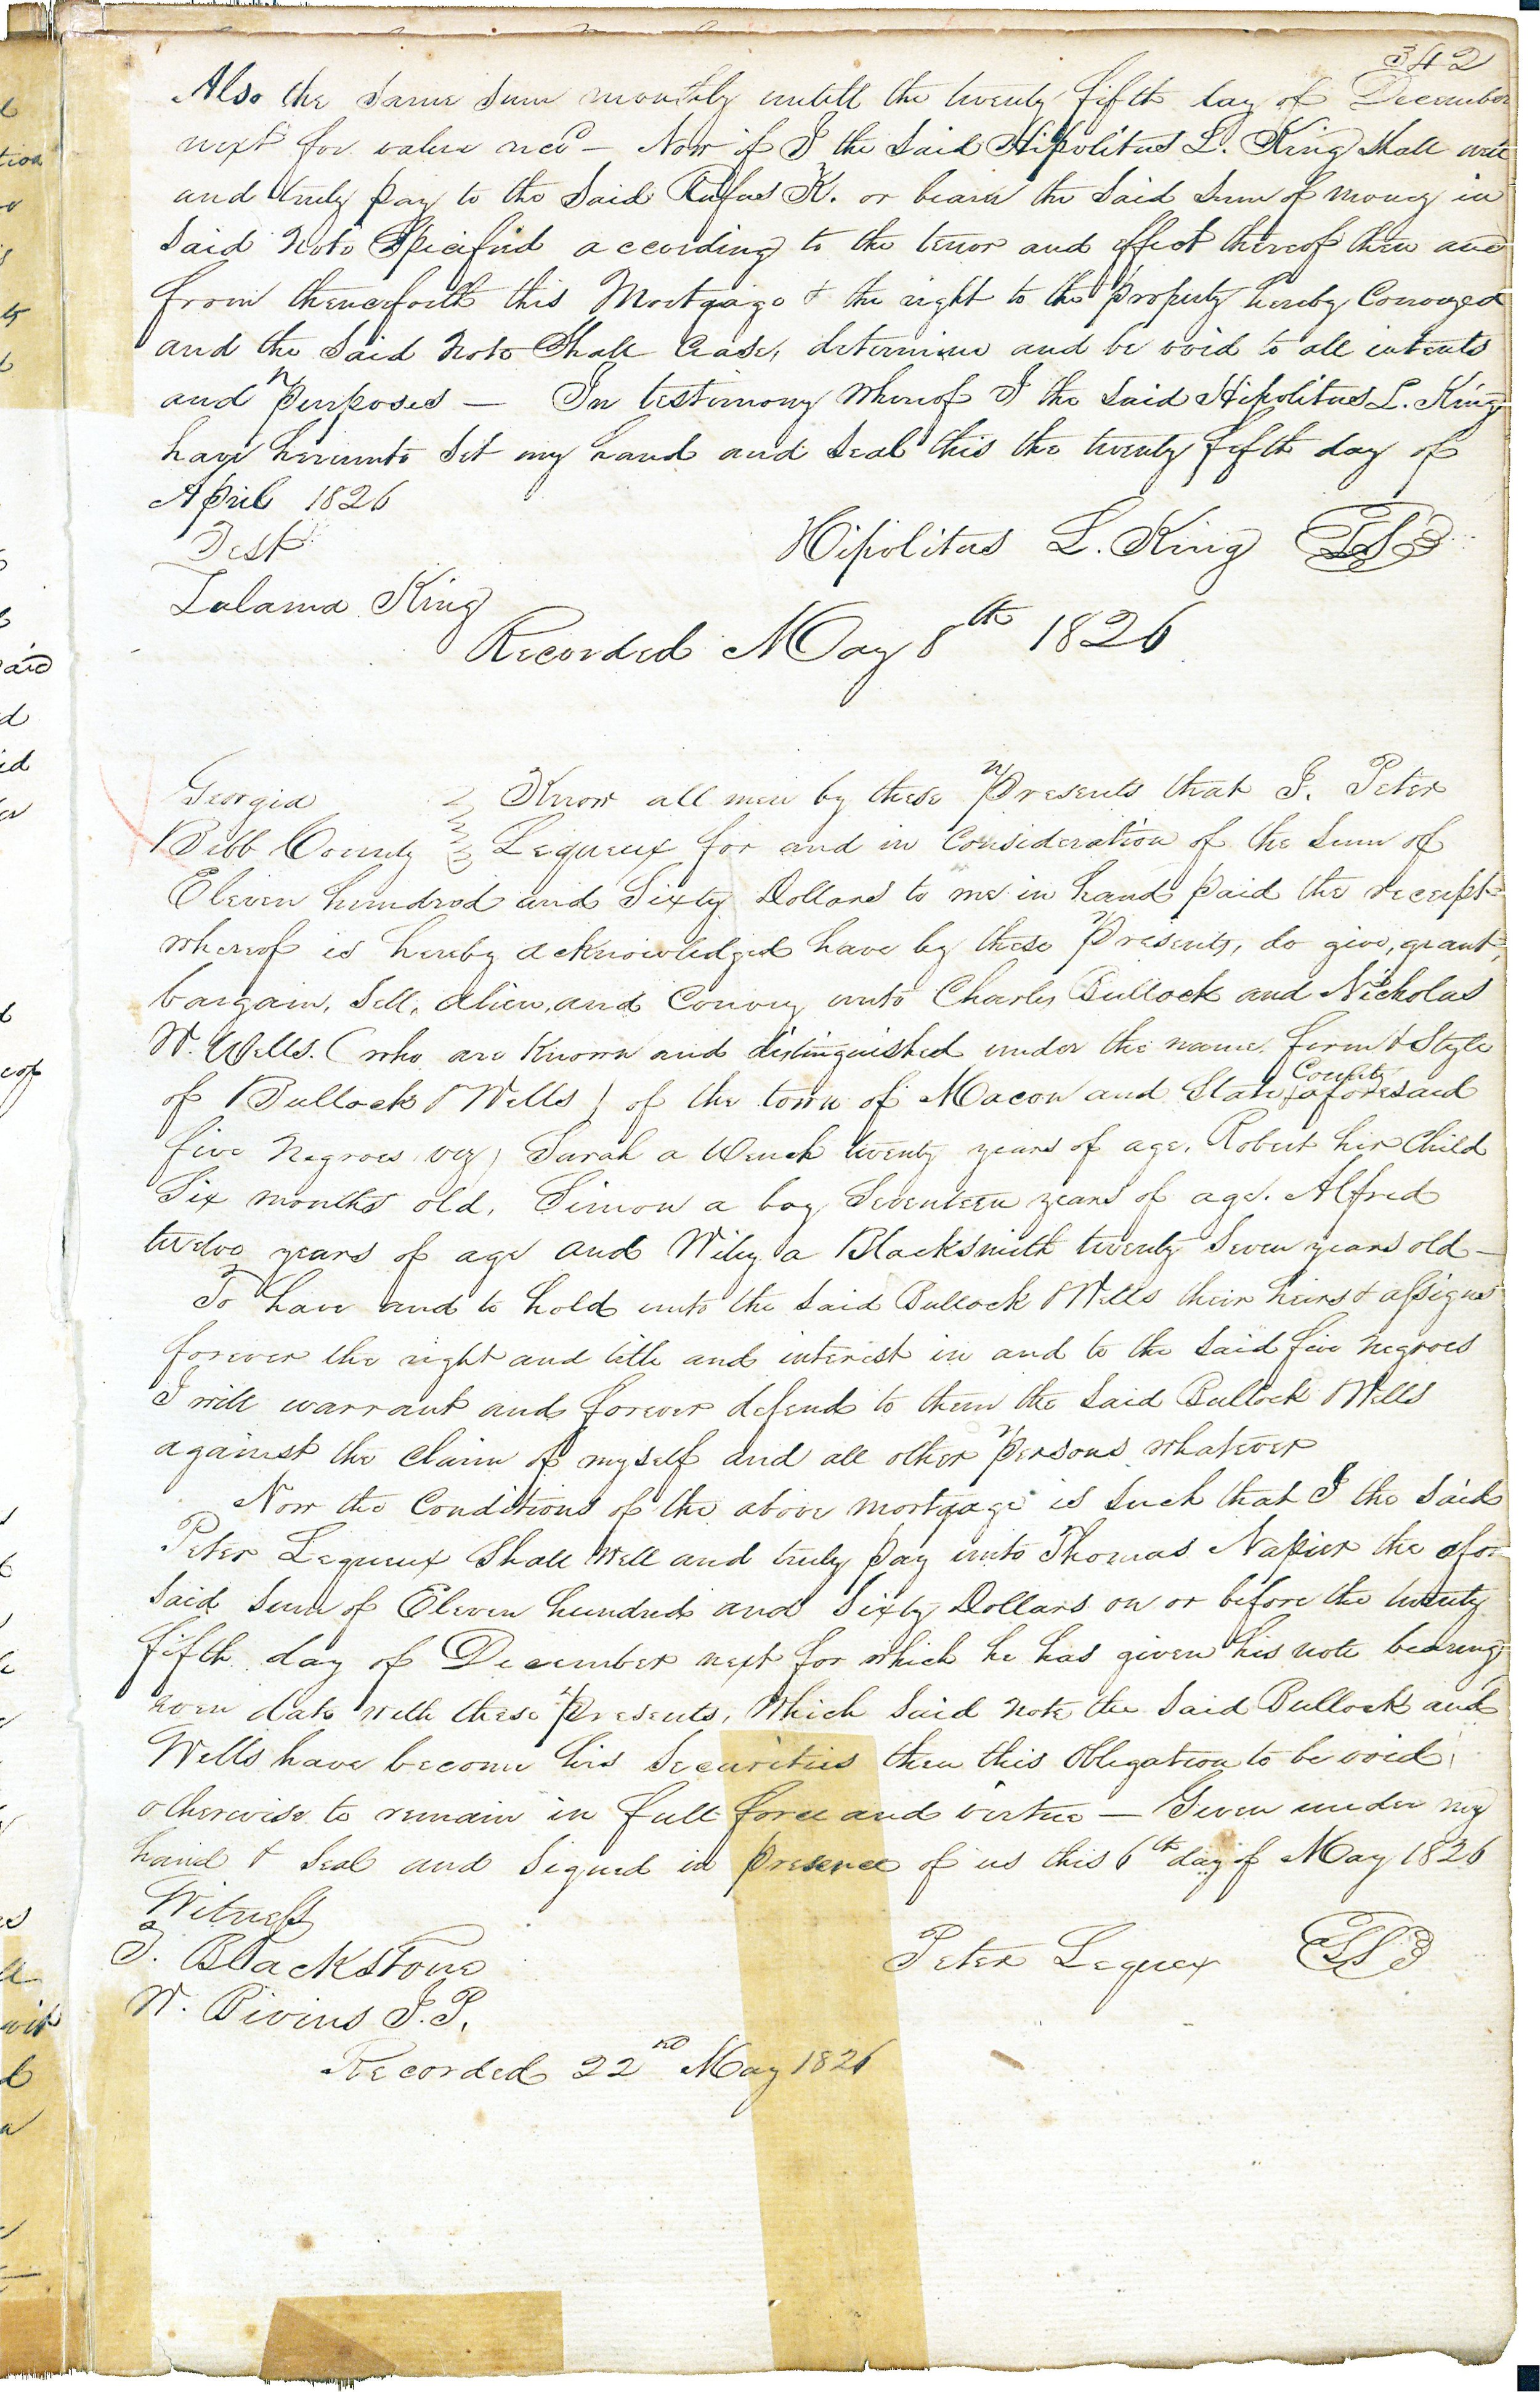 342
Also the same sum monthly untill the twenty fifth day of December
next for value recd — Now if I the said Hipolitus L. King shall well
and truly pay to the said Rufus K. or bearer the said sum of money in
said note Specified according to the tenor and effect thereof then and
from thenceforth this Mortgage & the right to the property hereby Conveyed
and the said note Shall Cease, determine and be void to all intents
and purposes — In testimony whereof I the said Hipolitus L. King
have hereunto Set my hand and seal this the twenty fifth day of
April 1826
Test
Hipolitus L. King LS
King
Recorded May 8th 1826
Georgia
Bibb County
Know all men by these presents that I, Peter
Lequeux for and in Consideration of the sum of
Eleven hundred and Sixty Dollars to me in hand paid the receipt
whereof is hereby acknowledged have by these presents, do give, grant,
bargain, sell, alien, and Convey unto Charles Bullock and Nicholas
W. Wells. (who are known and distinguished under the name, firm & Style
of Bullock & Wells) of the town of Macon and State & County aforesaid
five negroes viz; Sarah a Wench twenty years of age. Robert her Child
Six months old, Simon a boy Seventeen years of age. Alfred
twelve years of age and Wiley a Blacksmith twenty Seven years old —
To have and to hold unto the said Bullock & Wells their heirs & assigns
forever the right and title and interest in and to the said five negroes
I will warrant and forever defend to them the said Bullock & Wells
against the claim of myself and all other persons whatever
Now the Conditions of the above mortgage is such that I the said
Peter Lequeux Shall Well and truly pay unto Thomas Napier the afore
said sum of Eleven hundred and Sixty Dollars on or before the twenty
fifth day of December next for which he has given his note bearing
even date with these presents, Which said note the said Bullock and
Wells have become his Securities then this Obligation to be void
otherwise to remain in full force and virtue — Given under my
hand & seal and Signed in presence of us this 6th day of May 1826
Witness
J. Blackstone
Peter Lequex LS
W. Bivins J.P.
Recorded 22nd May 1826